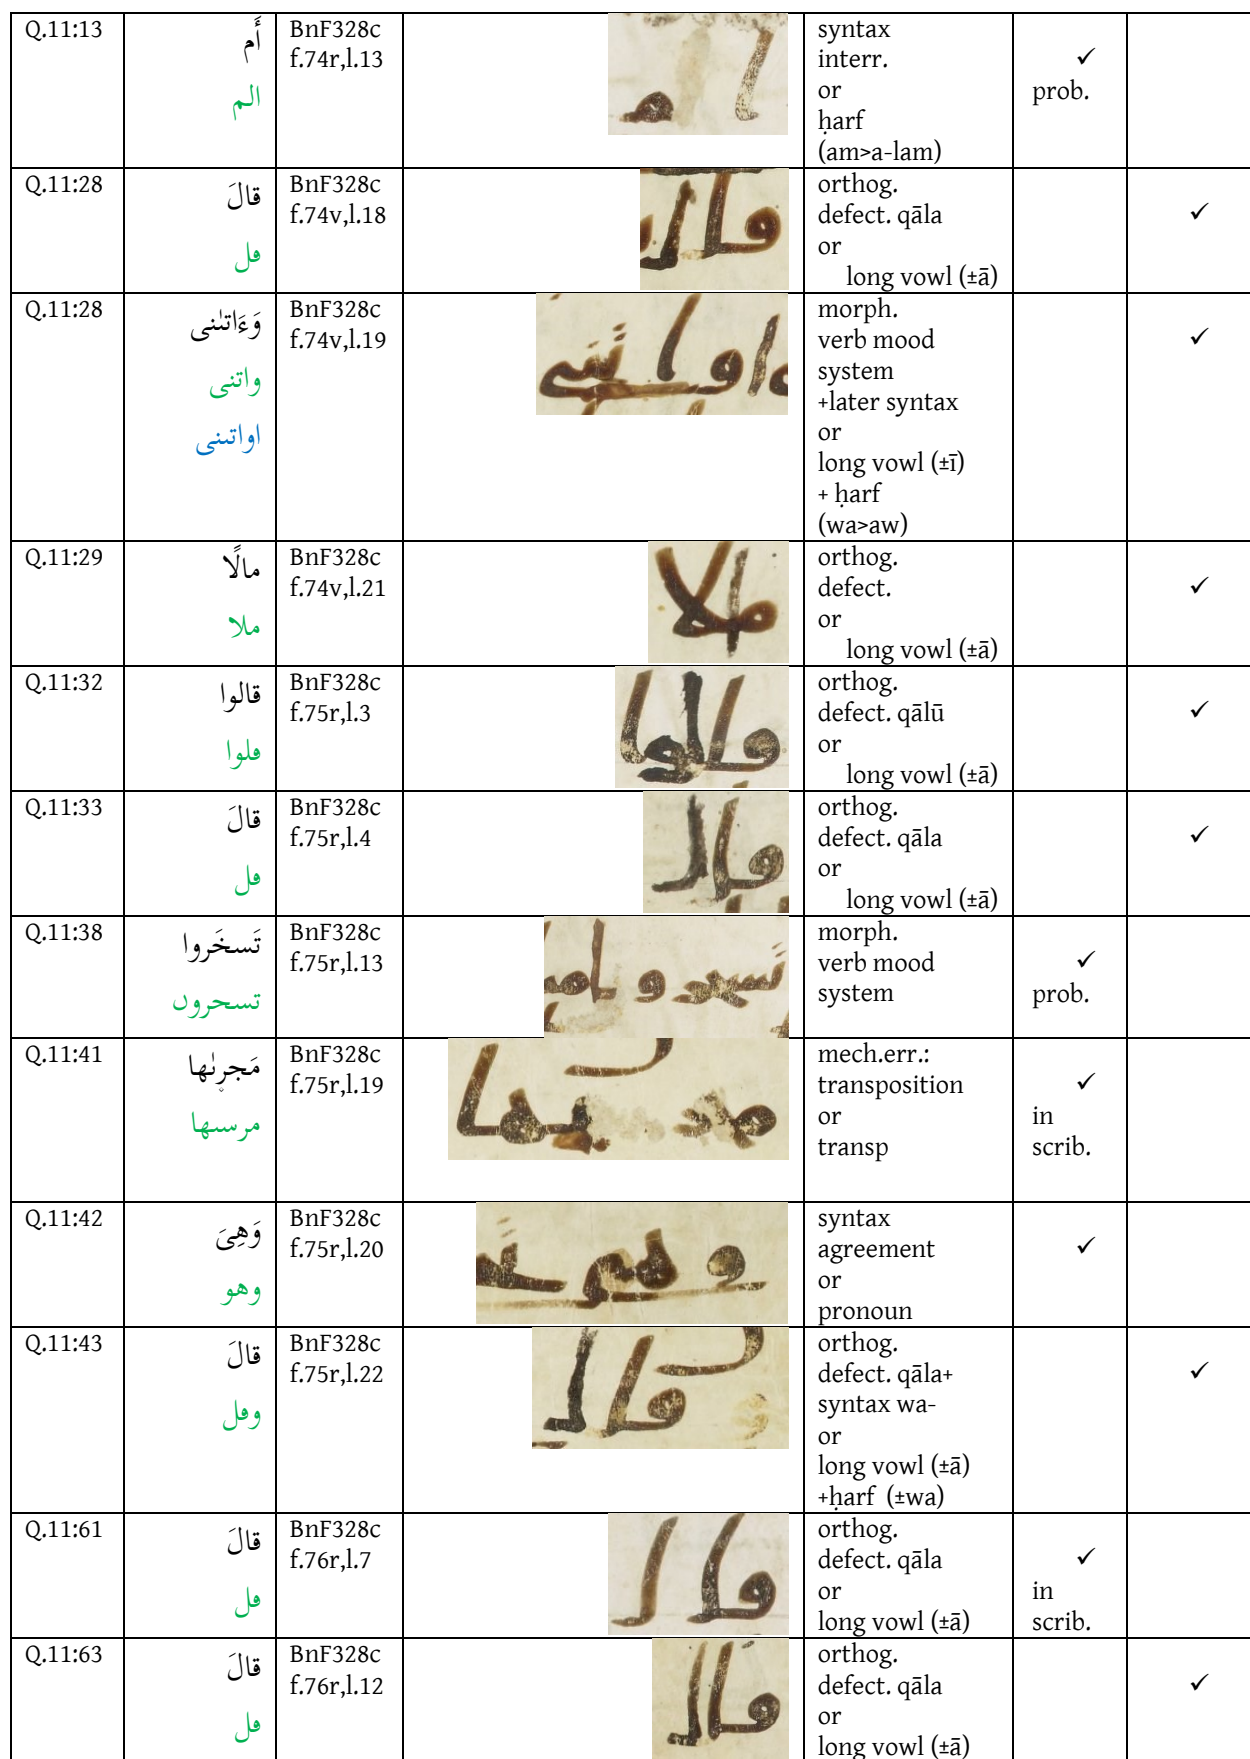 Q.11:13
أَم
الم
BnF328c
f.74r,l.13
syntax
interr.
or
ḥarf
(am>a-lam)
✓
prob.
Q.11:28
قالَ
ڡل
BnF328c
f.74v,l.18
orthog.
defect. qāla
or
long vowl (±ā)
✓
Q.11:28
وَءَاتىٰنى
واتنى
اواتىنى
BnF328c
f.74v,l.19
morph.
verb mood
system
+later syntax
or
long vowl (±ī)
+ ḥarf
(wa>aw)
✓
Q.11:29
مالًا
ملا
BnF328c
f.74v,l.21
orthog.
defect.
or
long vowl (±ā)
✓
Q.11:32
قالوا
ڡلوا
BnF328c
f.75r,l.3
orthog.
defect. qālū
or
long vowl (±ā)
✓
Q.11:33
قالَ
ڡل
BnF328c
f.75r,l.4
orthog.
defect. qāla
or
long vowl (±ā)
✓
Q.11:38
تَسخَروا
تسحروں
BnF328c
f.75r,l.13
morph.
verb mood
system
✓
prob.
Q.11:41
مَجر۪ىٰها
مرسىها
BnF328c
f.75r,l.19
mech.err.:
transposition
or
transp
✓
in
scrib.
Q.11:42
وَهِىَ
وهو
BnF328c
f.75r,l.20
syntax
agreement
or
pronoun
✓
Q.11:43
قالَ
وڡل
BnF328c
f.75r,l.22
orthog.
defect. qāla+
syntax wa-
or
long vowl (±ā)
+ḥarf (±wa)
✓
Q.11:61
قالَ
ڡل
BnF328c
f.76r,l.7
orthog.
defect. qāla
or
long vowl (±ā)
✓
in
scrib.
Q.11:63
قالَ
ڡل
BnF328c
f.76r,l.12
orthog.
defect. qāla
or
long vowl (±ā)
✓